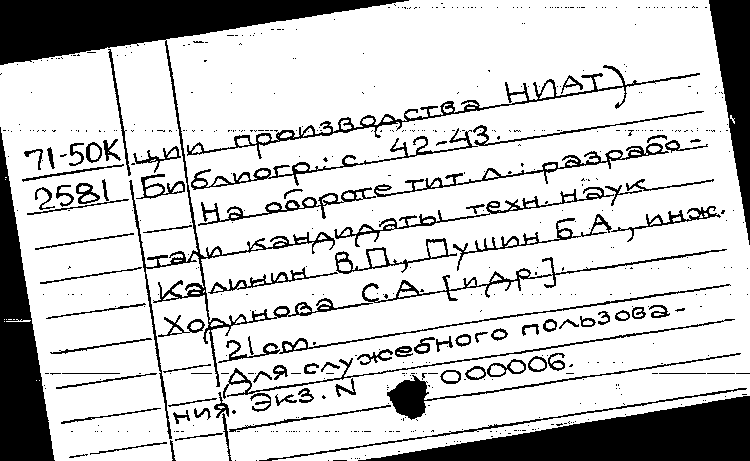 71-50К ции производства НИАТ).
2581 Библиогр.: с. 42-43.
На обороте тит. л.: разрабо-
тали кандидаты техн. наук
Калинин В.П., Пушин Б.А., инж.
Ходинова С.А. [и др.].
21 см.
Для служебного пользова-
ния. Экз. N 000006.